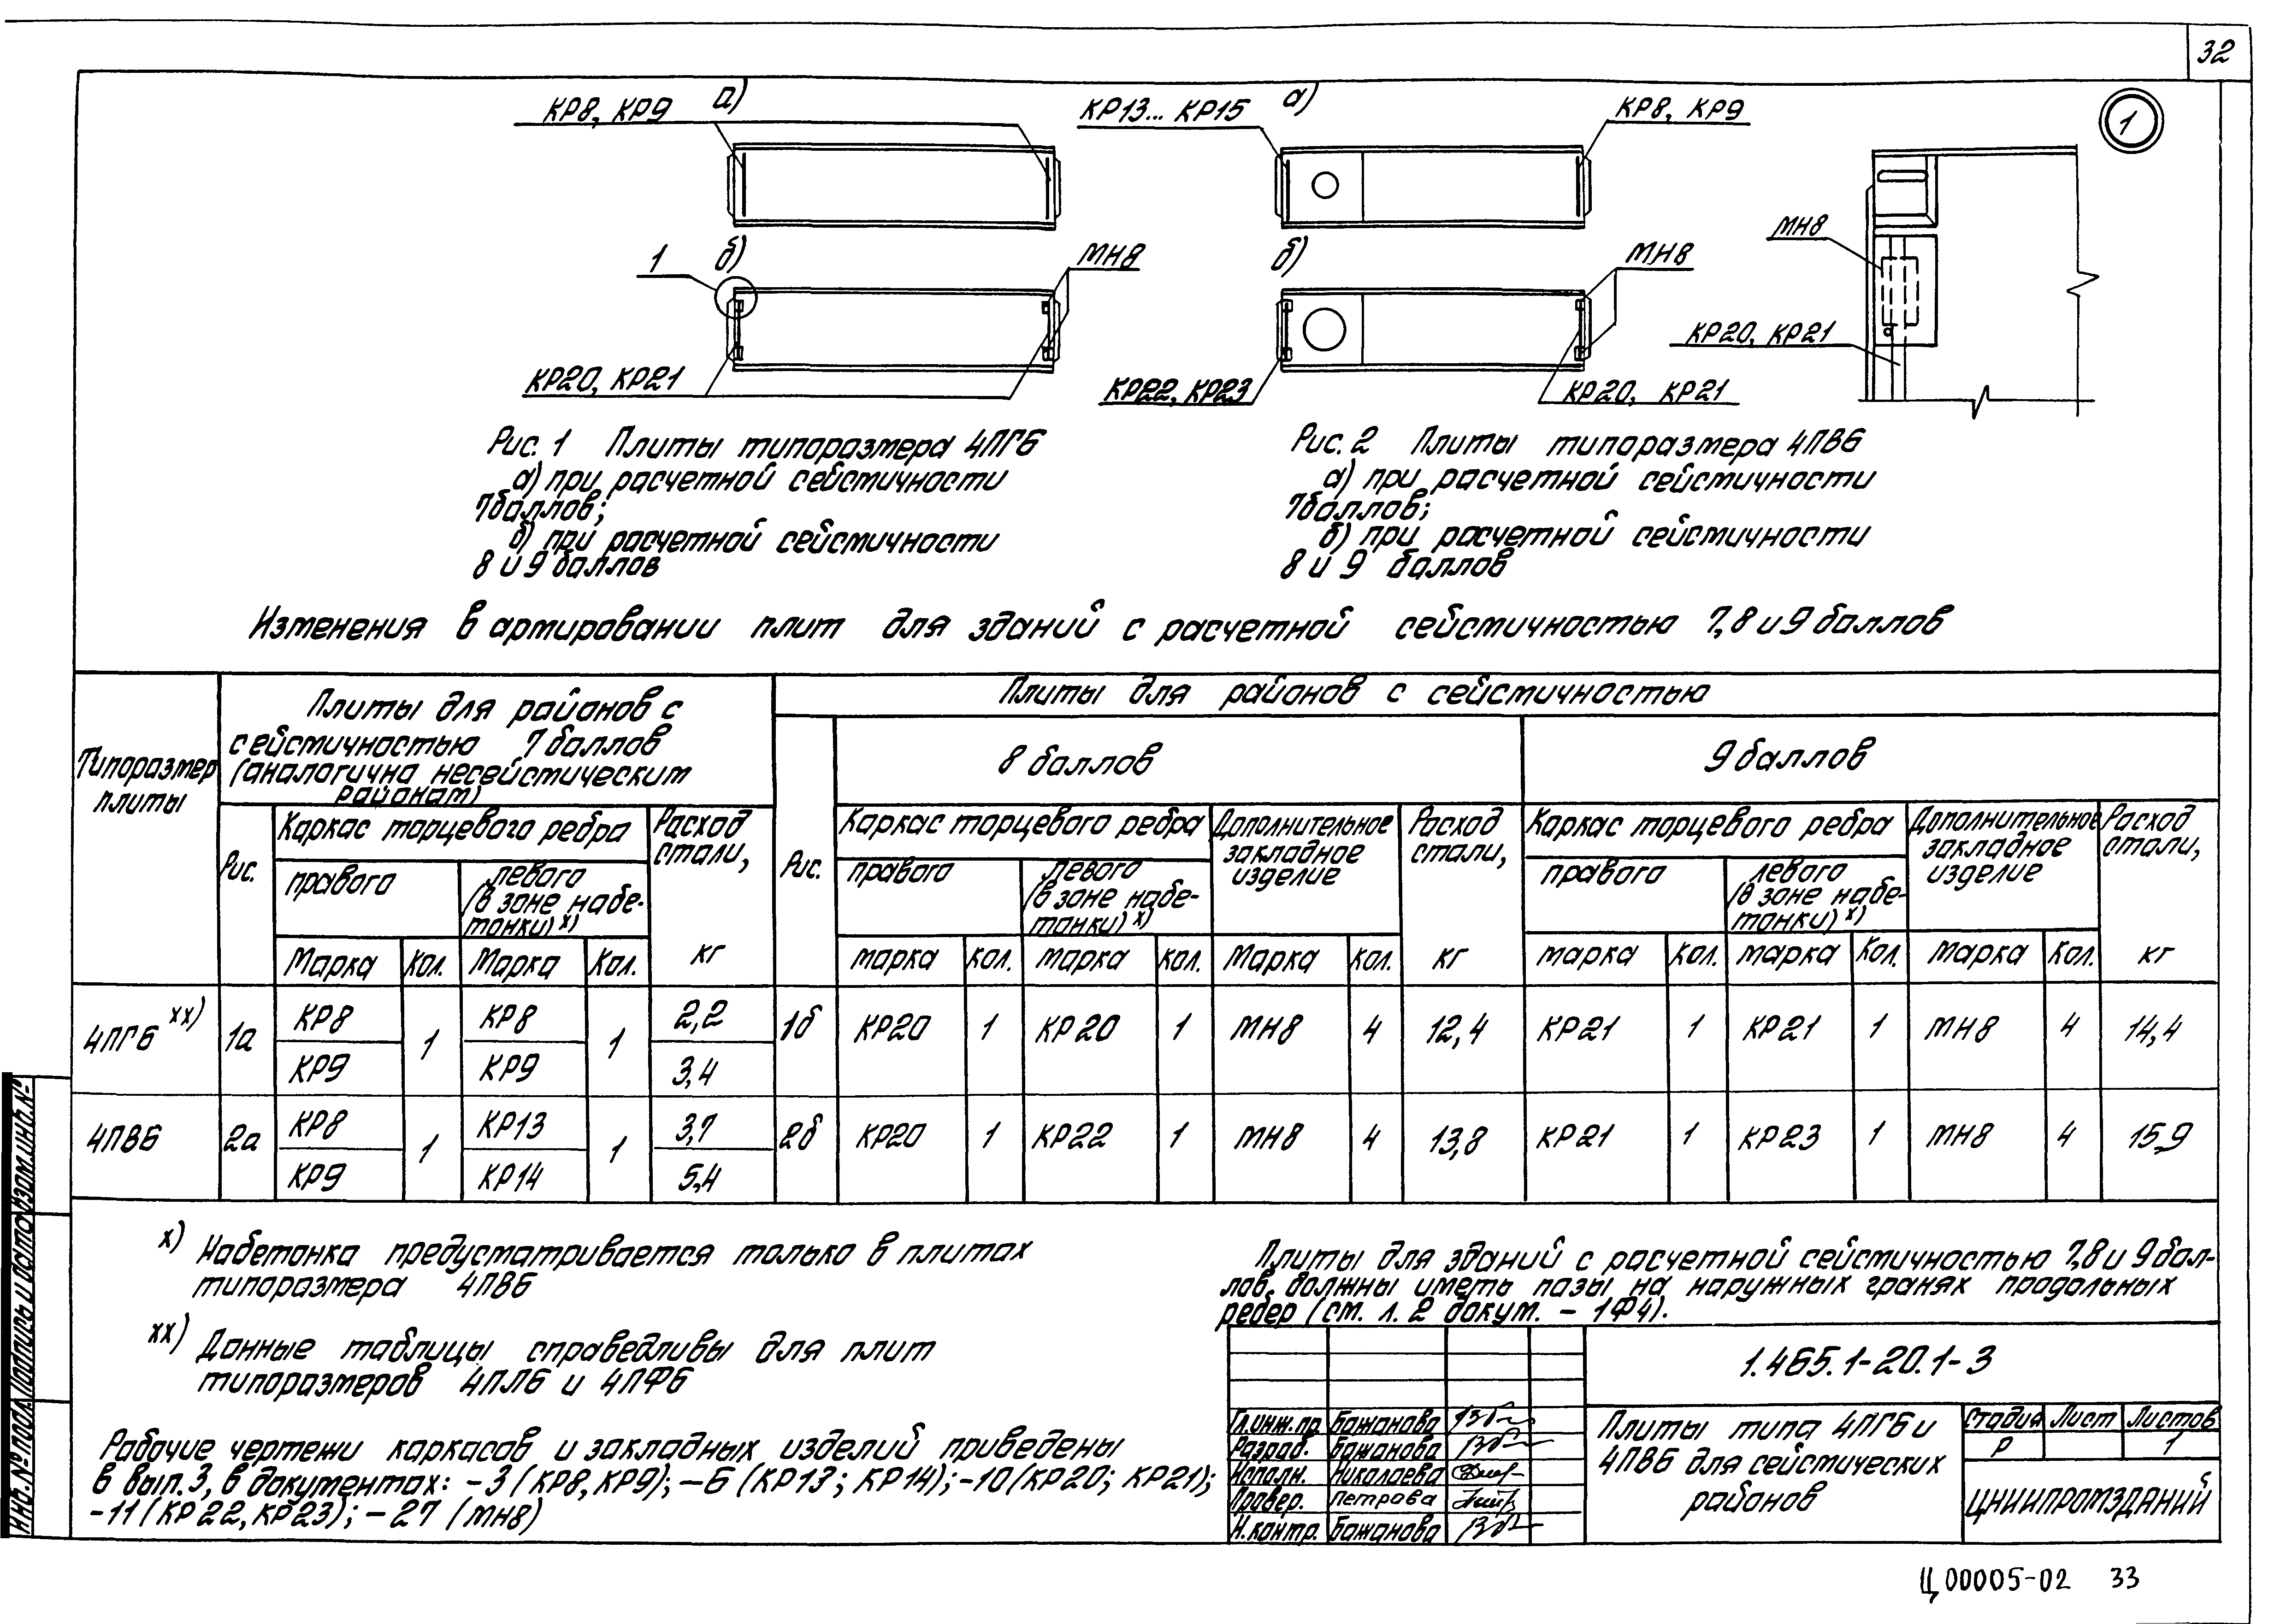 32
КР8, КР9
а)
КР13... КР15
а)
КР8, КР9
1
1
б)
МН8
б)
МН8
МН8
КР20, КР21
КР20, КР21
КР22, КР23
КР20, КР21
Рис. 1 Плиты типоразмера 4ПГ6
а) при расчетной сейсмичности
7 баллов;
б) при расчетной сейсмичности
8 и 9 баллов
Рис. 2 Плиты типоразмера 4ПВ6
а) при расчетной сейсмичности
7 баллов;
б) при расчетной сейсмичности
8 и 9 баллов
Изменения в армировании плит для зданий с расчетной сейсмичностью 7,8 и 9 баллов
Типоразмер
плиты
Плиты для районов с
сейсмичностью 7 баллов
(аналогична несейсмическим
районам)
Плиты для районов с сейсмичностью
8 баллов
9 баллов
Рис.
Каркас торцевого ребра
правого
левого
(в зоне набе-
тонки) х)
Расход
стали,
кг
Марка Кол. Марка Кол.
Рис.
Каркас торцевого ребра
правого
левого
(в зоне набе-
тонки) х)
Дополнительное
закладное
изделие
Расход
стали,
кг
марка Кол. марка Кол. Марка Кол.
Каркас торцевого ребра
правого
левого
(в зоне набе-
тонки) х)
Дополнительное
закладное
изделие
Расход
стали,
кг
марка Кол. марка Кол. Марка Кол.
4ПГ6 хх) 1а КР8 1 КР8 1 2,2 1б КР20 1 КР20 1 МН8 4 12,4 КР21 1 КР21 1 МН8 4 14,4
КР9 КР9 3,4
4ПВ6 2а КР8 1 КР13 1 3,7 2б КР20 1 КР22 1 МН8 4 13,8 КР21 1 КР23 1 МН8 4 15,9
КР9 КР14 5,4
х) Набетонка предусматривается только в плитах
типоразмера 4ПВ6
хх) Данные таблицы справедливы для плит
типоразмеров 4ПЛ6 и 4ПФ6
Рабочие чертежи каркасов и закладных изделий приведены
в вып. 3, в документах: -3 (КР8, КР9); -6 (КР13; КР14); -10 (КР20; КР21);
-11 (КР22, КР23); -27 (МН8)
Плиты для зданий с расчетной сейсмичностью 7,8 и 9 бал-
лов, должны иметь пазы на наружных гранях продольных
ребер (см. л. 2 докум. - 1Ф4).
1.465.1-20.1-3
Гл.инж.пр. Бажанова
Разраб. Бажанова
Исполн. Николаева
Провер. Петрова
Н.контр. Бажанова
Плиты типа 4ПГ6 и
4ПВ6 для сейсмических
районов
Стадия Лист Листов
Р 1
ЦНИИПРОМЗДАНИЙ
Инв.№ подл. Подпись и дата Взам.инв.№
Ц00005-02 33